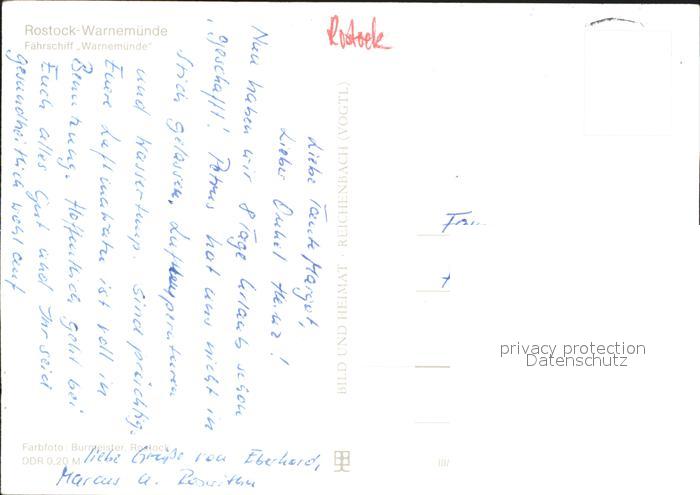 Rostock-Warnemünde
Fährschiff „Warnemünde"
Rostock
Liebe Tante Margot,
Lieber Onkel Heinz!
Nun haben wir 8 Tage Urlaub schon
„geschafft! Petrus hat uns nicht im
Stich gelassen. Lufttemperaturen
und Wassertemp. sind prächtig.
Eure Luftmatratze ist voll in
Benutzung. Hoffentlich geht bei
Euch alles Gut und Ihr seid
gesundheitlich wohl auf
liebe Grüße von Eberhard,
Marcus u. Roswitha
BILD UND HEIMAT · REICHENBACH (VOGTL.)
Farbfoto: Burmeister, Rostock
DDR 0,20 M
privacy protection
Datenschutz